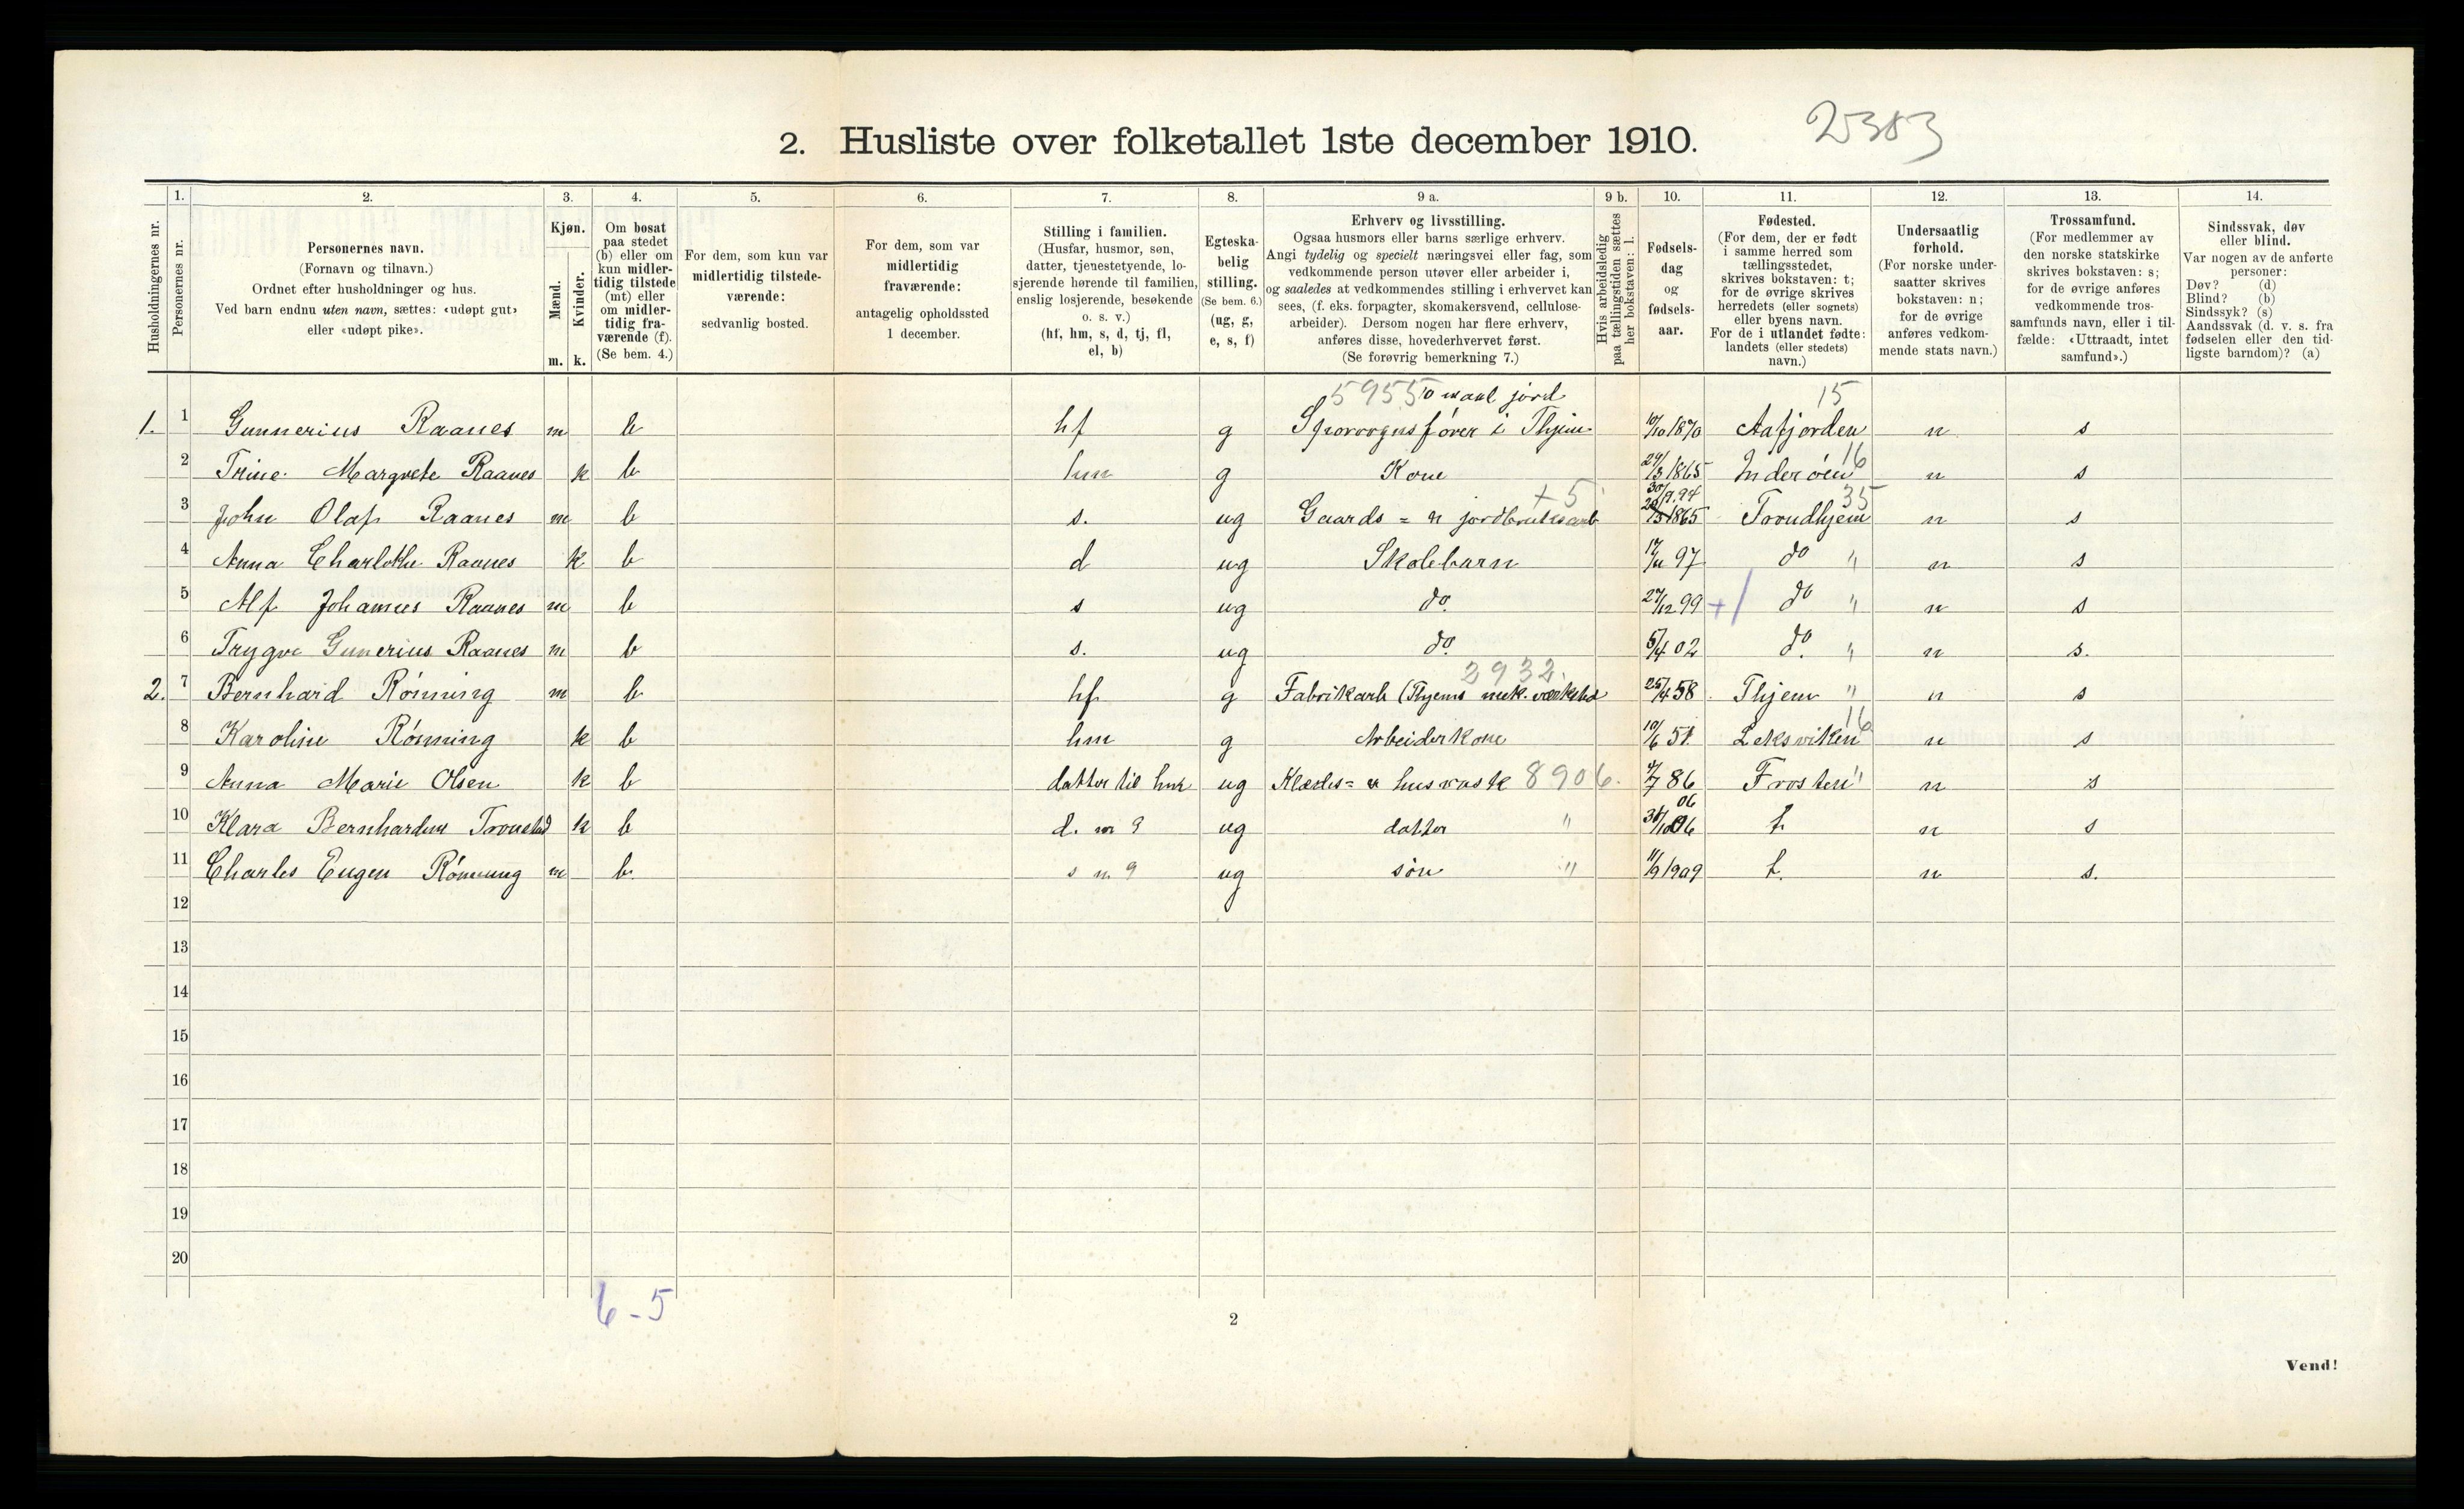 2. Husliste over folketallet 1ste december 1910. 2383
Husholdningernes nr.
Personernes nr.
1.
2.
Personernes navn.
(Fornavn og tilnavn.)
Ordnet efter husholdninger og hus.
Ved barn endnu uten navn, sættes: «udøpt gut»
eller «udøpt pike».
3.
Kjøn.
Mænd.
Kvinder.
m. k.
4.
Om bosat
paa stedet
(b) eller om
kun midler-
tidig tilstede
(mt) eller
om midler-
tidig fra-
værende (f).
(Se bem. 4.)
5.
For dem, som kun var
midlertidig tilstede-
værende:
sedvanlig bosted.
6.
For dem, som var
midlertidig
fraværende:
antagelig opholdssted
1 december.
7.
Stilling i familien.
(Husfar, husmor, søn,
datter, tjenestetyende, lo-
sjerende hørende til familien,
enslig losjerende, besøkende
o. s. v.)
(hf, hm, s, d, tj, fl,
el, b)
8.
Egteska-
belig
stilling.
(Se bem. 6.)
(ug, g,
e, s, f)
9 a.
Erhverv og livsstilling.
Ogsaa husmors eller barns særlige erhverv.
Angi tydelig og specielt næringsvei eller fag, som
vedkommende person utøver eller arbeider i,
og saaledes at vedkommendes stilling i erhvervet kan
sees, (f. eks. forpagter, skomakersvend, cellulose-
arbeider). Dersom nogen har flere erhverv,
anføres disse, hovederhvervet først.
(Se forøvrig bemerkning 7.)
9 b.
Hvis arbeidsledig
paa tællingstiden sættes
her bokstaven: l.
10.
Fødsels-
dag
og
fødsels-
aar.
11.
Fødested.
(For dem, der er født
i samme herred som
tællingsstedet,
skrives bokstaven: t;
for de øvrige skrives
herredets (eller sognets)
eller byens navn.
For de i utlandet fødte:
landets (eller stedets)
navn.)
12.
Undersaatlig
forhold.
(For norske under-
saatter skrives
bokstaven: n;
for de øvrige
anføres vedkom-
mende stats navn.)
13.
Trossamfund.
(For medlemmer av
den norske statskirke
skrives bokstaven: s;
for de øvrige anføres
vedkommende tros-
samfunds navn, eller i til-
fælde: «Uttraadt, intet
samfund».)
14.
Sindssvak, døv
eller blind.
Var nogen av de anførte
personer:
Døv? (d)
Blind? (b)
Sindssyk? (s)
Aandssvak (d. v. s. fra
fødselen eller den tid-
ligste barndom)? (a)
5955 10 maal jord 15
1. 1 Gunnerius Raanes m b hf g Sporvognsfører i Thjem 10/10 1870 Aafjorden n s
2 Trine Margrete Raanes k b hm g Kone 29/3 1865 Inderøen 16 n s
+5 30/9.94 35
3 John Olaf Raanes m b s. ug Gaards = n jordbruksarb 1865 Trondhjem n s
4 Anna Charlotte Raanes k b d ug Skolebarn 97 do " n s
5 Alf Johannes Raanes m b s ug do. 27/12 99 +/ do " n s
6 Trygve Gunerius Raanes m b s. ug do. 5/4 02 do. " n s.
2932.
2. 7 Bernhard Rönning m b hf g Fabrikarb (Thjems mek. værksted 25/4 58. Thjem " n s
8 Karoline Rönning k b hm g Arbeiderkone 10/6 51. Leksviken 16 n s
9 Anna Marie Olsen k b datter til hm ug Klædes= n husvask 8906. 86 Frosten " n s
06
10 Klara Bernhardine Tronstad k b d. m 9 ug datter " t. n s
11 Charles Eugen Rönning m b. s m 9 ug søn " 11/9 1909 t. n s.
12
13
14
15
16
17
18
19
20
6-5
2
Vend!